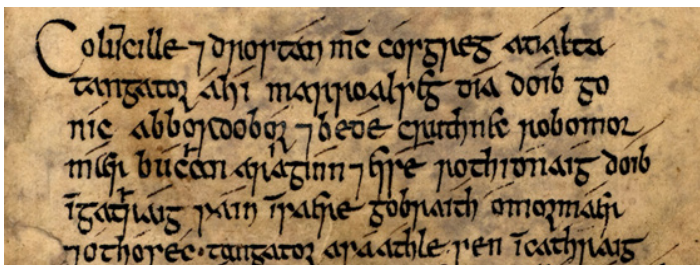 Colūcille ⁊ drostán mc̄ cosgreg adalta
tangator áhi marroalseg dia doib go
nic abbordoboir ⁊ bede cruthnec robomor
mær buchan araginn ⁊ esse rothidnaig doib
īgathraig sain īsaere gobraith omormaer
⁊ othosec· tangator asaathle sen īcathraig